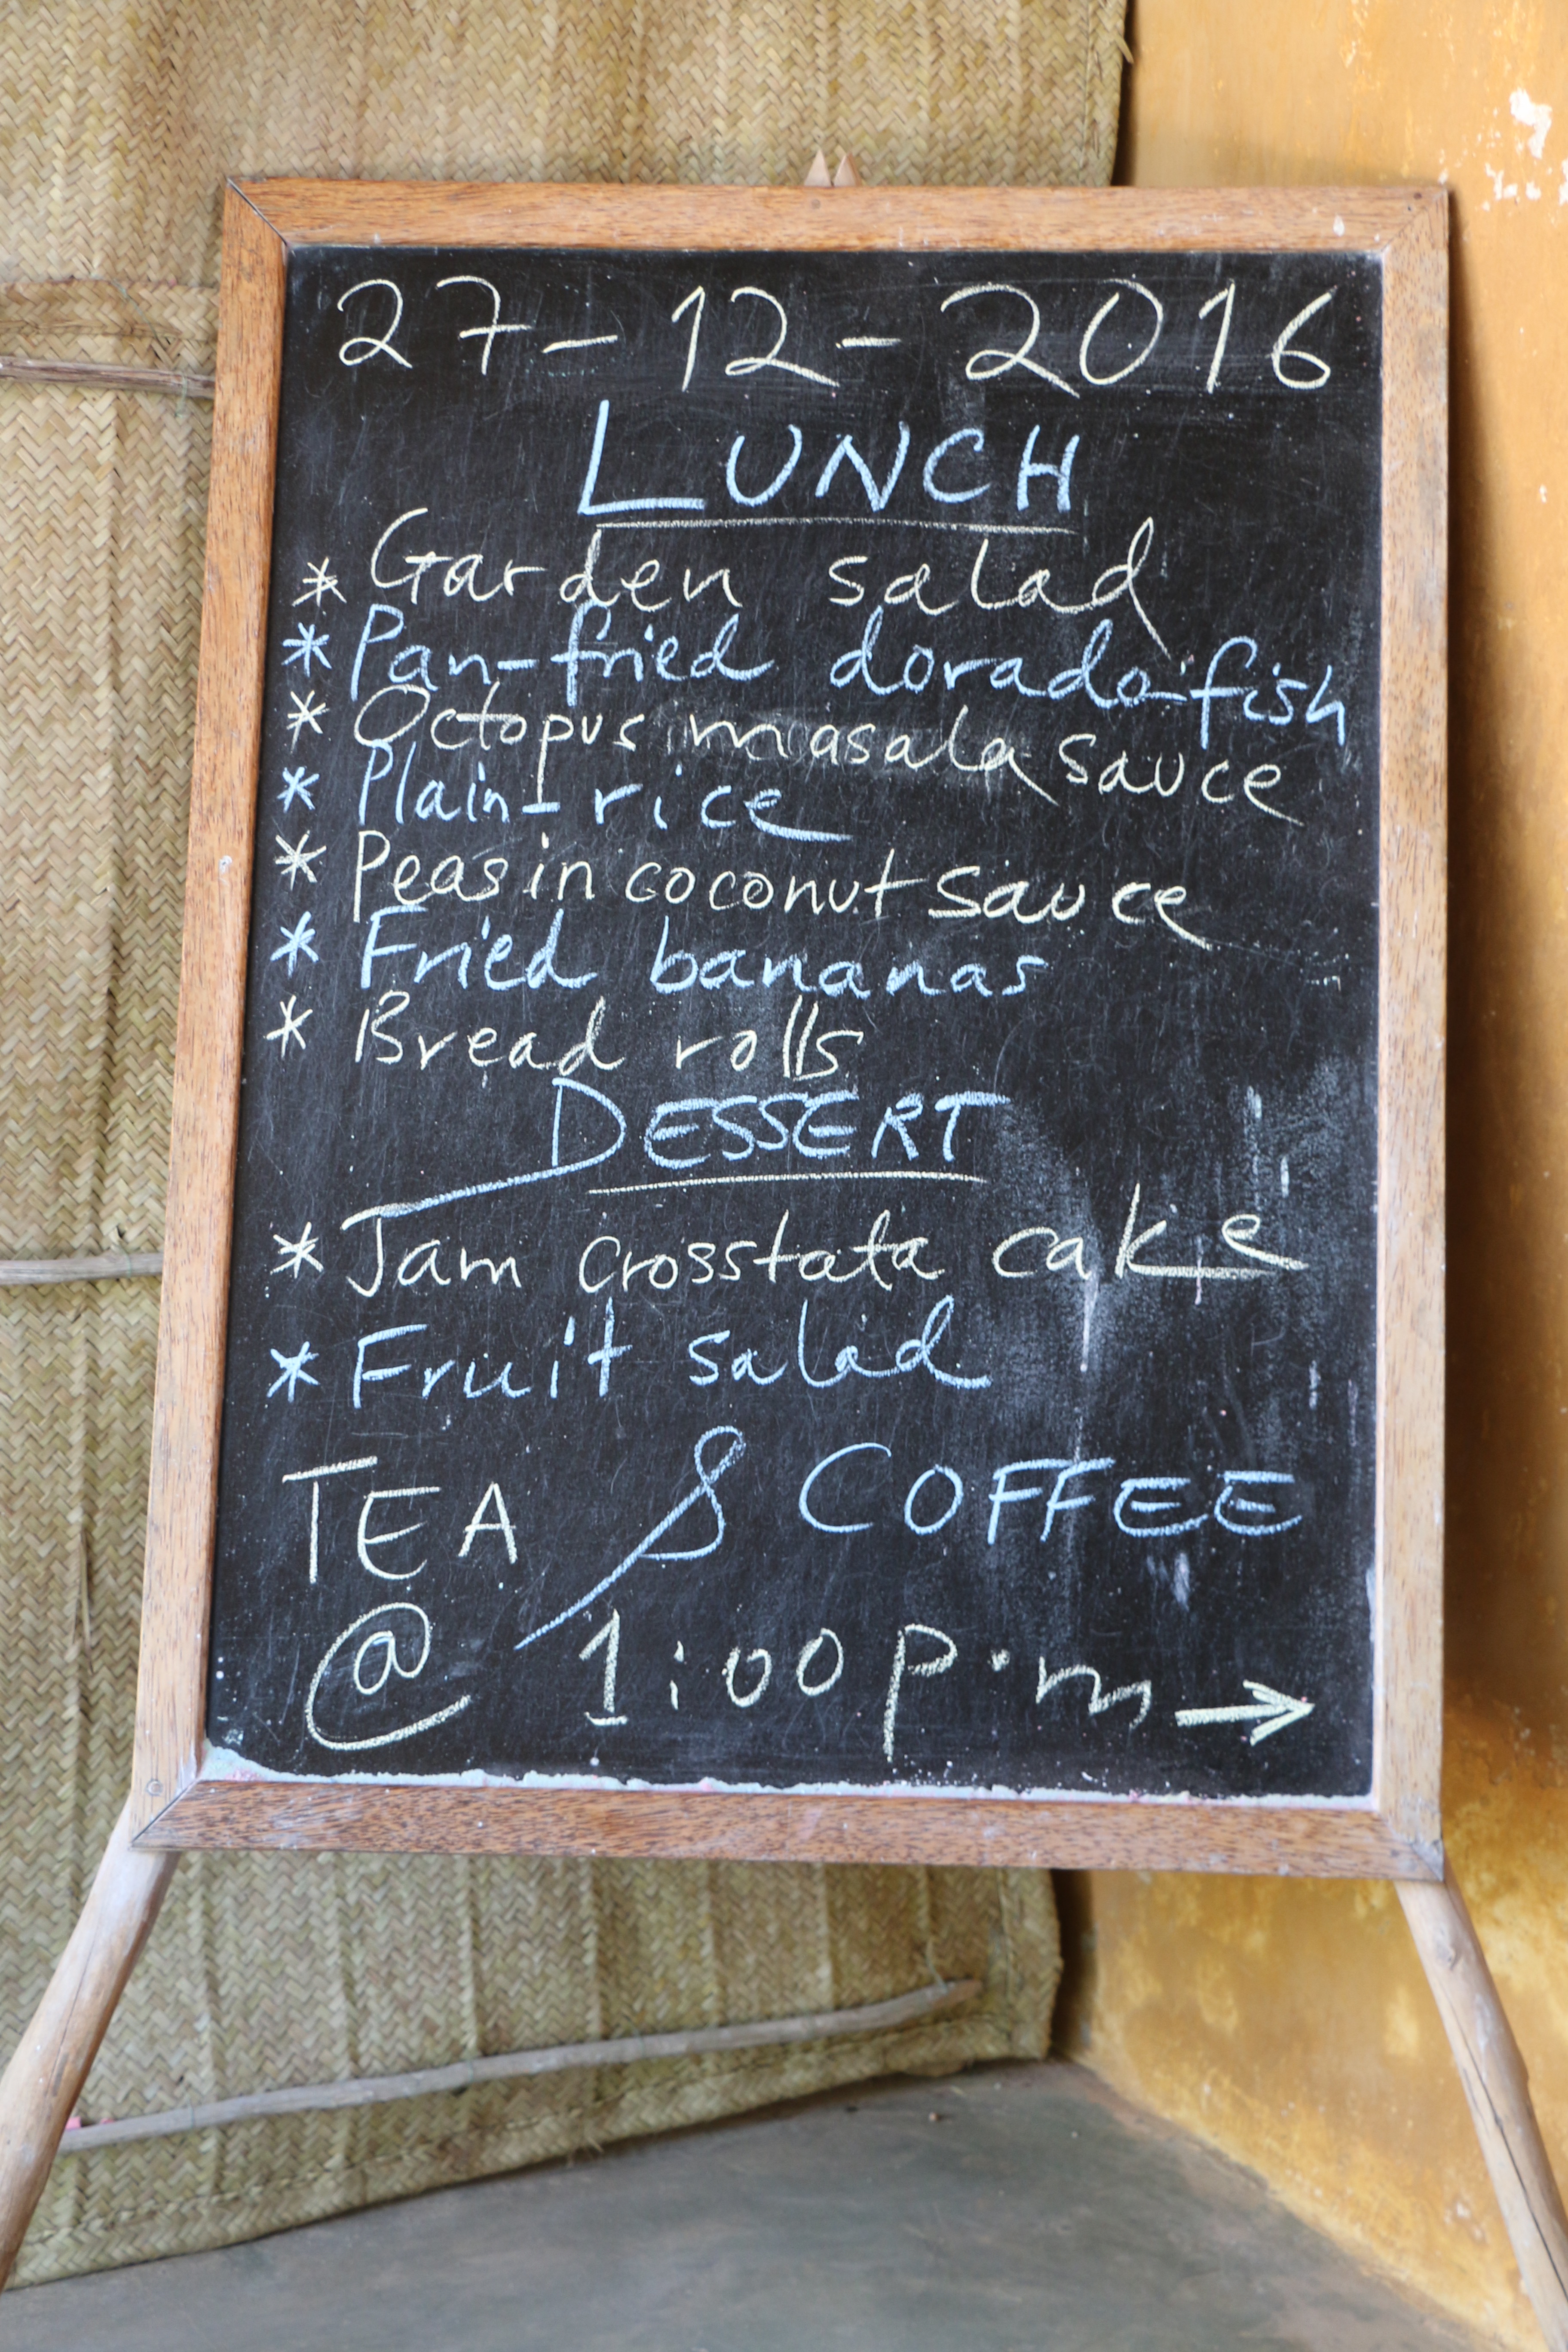 27-12-2016
LUNCH
* Garden salad
* Pan-fried dorado-fish
* Octopus masala sauce
* Plain-rice
* Peas in coconut sauce
* Fried bananas
* Bread rolls
DESSERT
* Jam crosstata cake
* Fruit salad
TEA & COFFEE
@ 1:00 p.m →